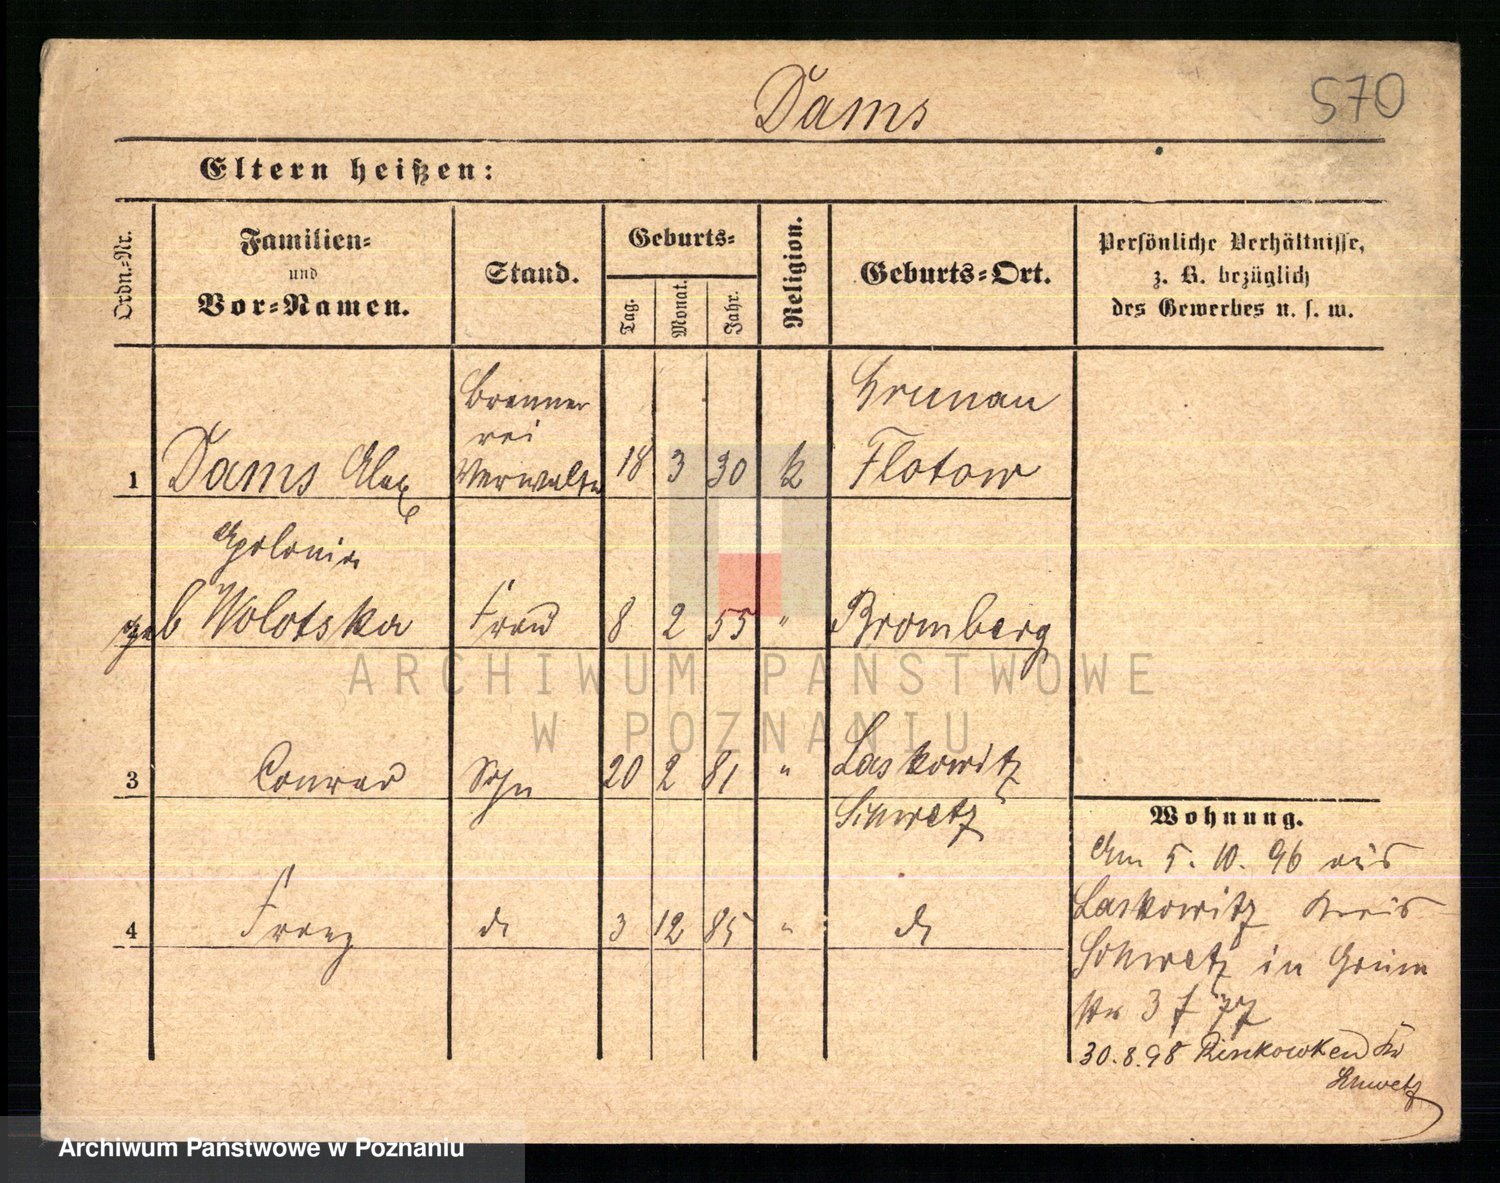 Dams
570
Eltern heißen:
Ordn.-Nr.
Familien-
und
Vor-Namen.
Stand.
Geburts-
Tag.
Monat.
Jahr.
Religion.
Geburts-Ort.
Persönliche Verhältnisse,
z. B. bezüglich
des Gewerbes u. s. w.
1 Dams Alex
Brenner
rei
Verwalter
18 3 30 k
Grunau
Flotow
Apolonia
geb Wolotska Frau 8 2 55 " Bromberg
3 Conrad Sohn 20 2 81 " Laskowitz
Schwetz
4 Franz do 3 12 85 " do
Wohnung.
Am 5. 10. 96 aus
Laskowitz Kreis
Schwetz in Grün
str 3 f 77
30.8.98 Rinkowken Kr
Schwetz
ARCHIWUM PAŃSTWOWE
W POZNANIU
Archiwum Państwowe w Poznaniu